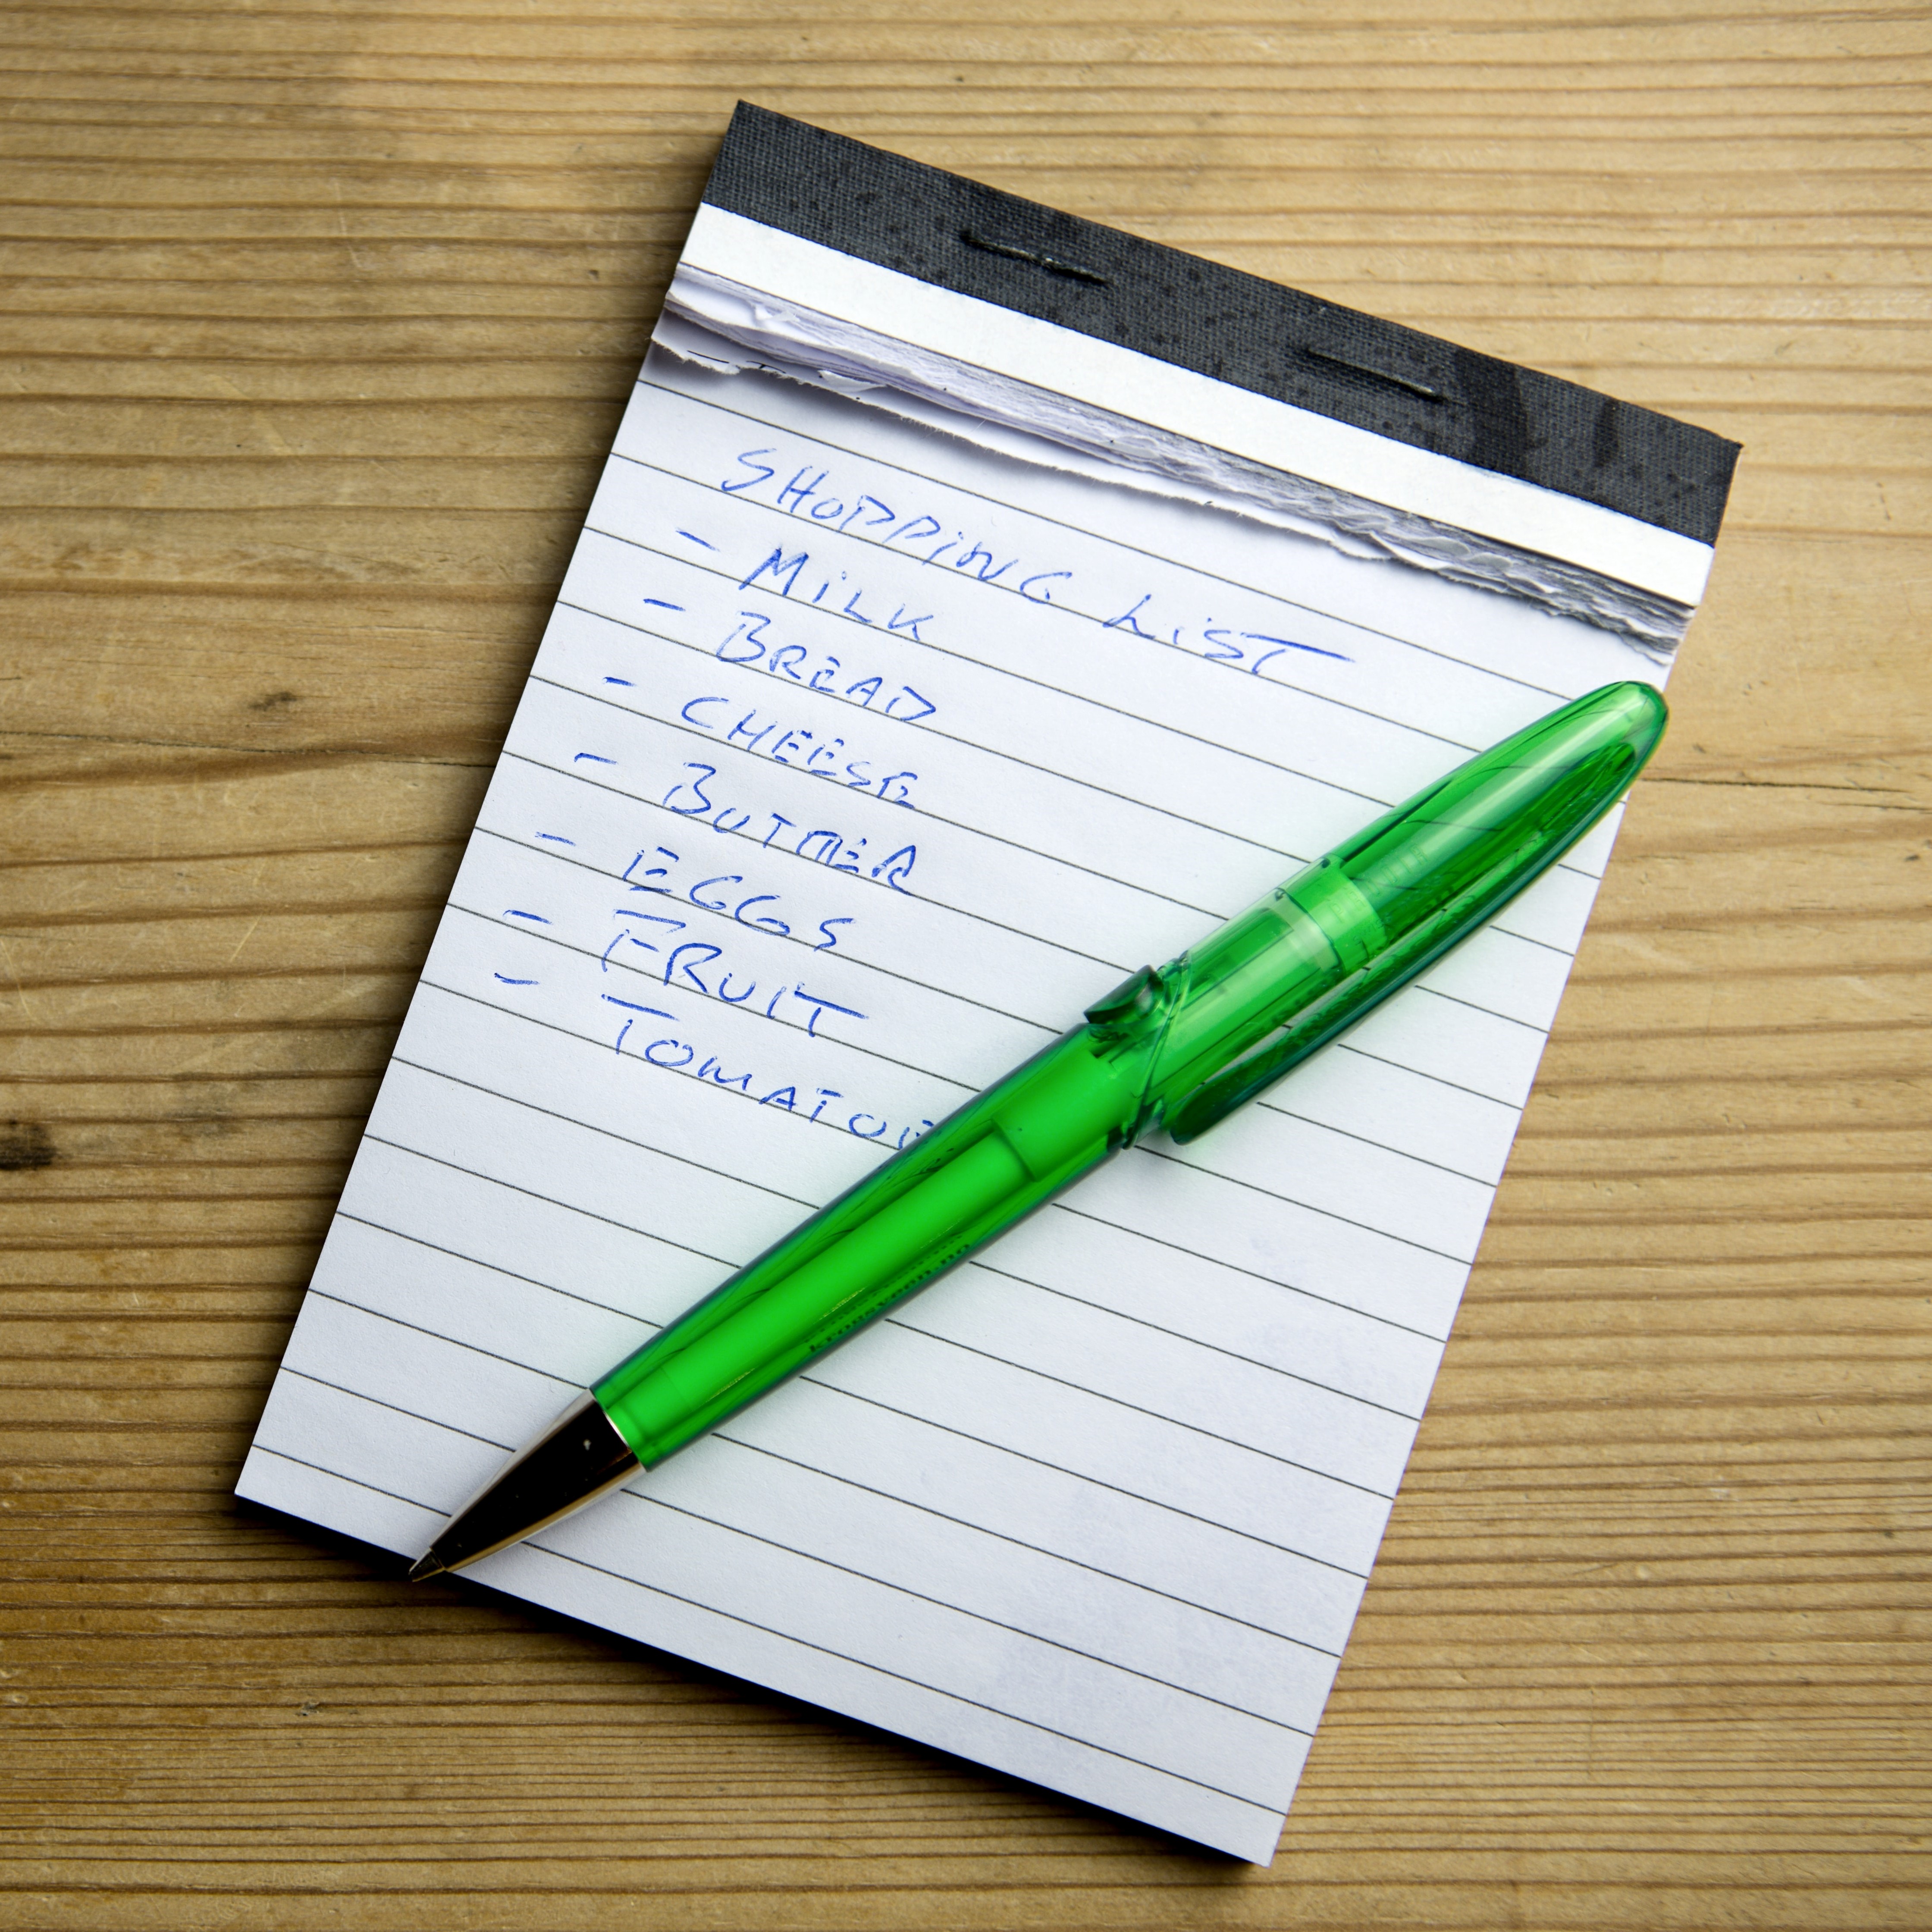 SHOPPING LIST
- MILK
- BREAD
- CHEESE
- BUTTER
- EGGS
- FRUIT
- TOMATOE